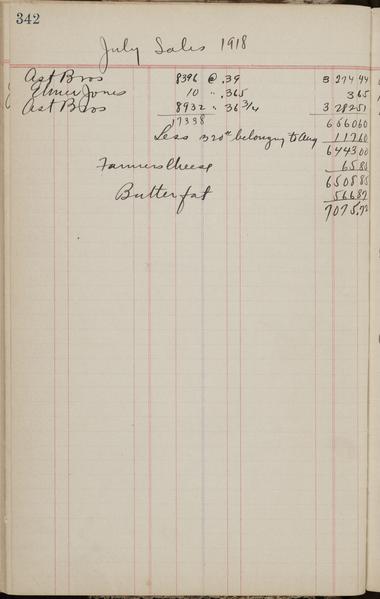 342
July Sales 1918
Ast Bros 8396 @ .39 3 274 44
Elmer Jones 10 " .365 3 65
Ast Bros 8932 " 36 3/4 3 282 51
17338 6560 60
Less 320# belonging to Aug 117 60
6443 00
Farmers Cheese 65 85
6508 85
Butterfat 566 87
7075.72